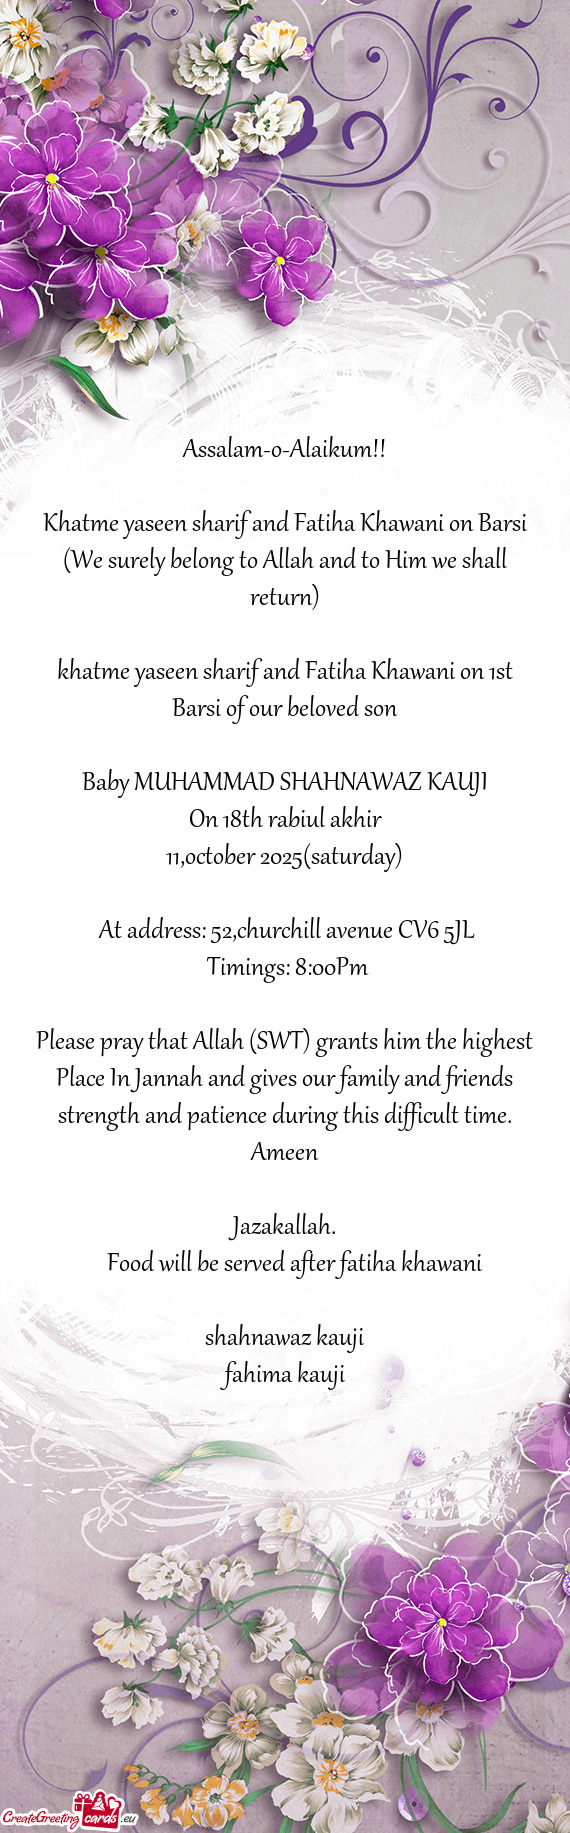 Assalam-o-Alaikum!!
Khatme yaseen sharif and Fatiha Khawani on Barsi
(We surely belong to Allah and to Him we shall
return)
khatme yaseen sharif and Fatiha Khawani on 1st
Barsi of our beloved son
Baby MUHAMMAD SHAHNAWAZ KAUJI
On 18th rabiul akhir
11,october 2025(saturday)
At address: 52,churchill avenue CV6 5JL
Timings: 8:00Pm
Please pray that Allah (SWT) grants him the highest
Place In Jannah and gives our family and friends
strength and patience during this difficult time.
Ameen
Jazakallah.
Food will be served after fatiha khawani
shahnawaz kauji
fahima kauji
CreateGreeting cards .eu